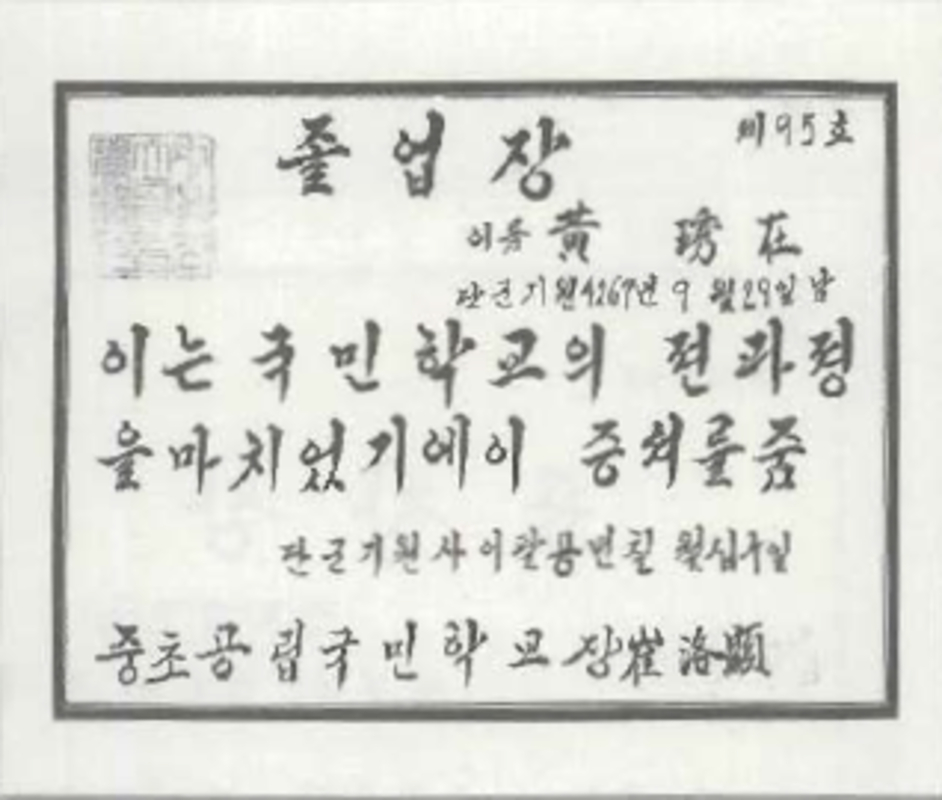 제95호
졸업장
이름 黃 琇在
단군기원4267년 9월29일 남
이는 국민학교의 전과정
을마치었기에이 증서를줌
단군기원사이팔공년칠월십구일
중초공립국민학교장崔洛顯